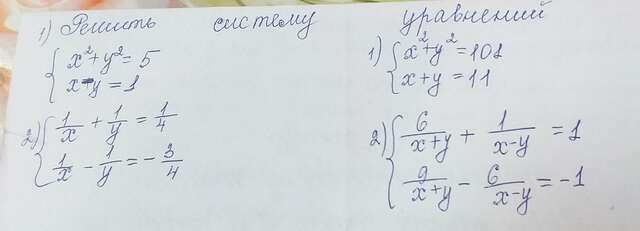 1) Решить систему уравнений
{ x² + y² = 5
x - y = 1
2) { 1/x + 1/y = 1/4
1/x - 1/y = - 3/4
1) { x² + y² = 101
x + y = 11
2) { 6/(x+y) + 1/(x-y) = 1
9/(x+y) - 6/(x-y) = -1